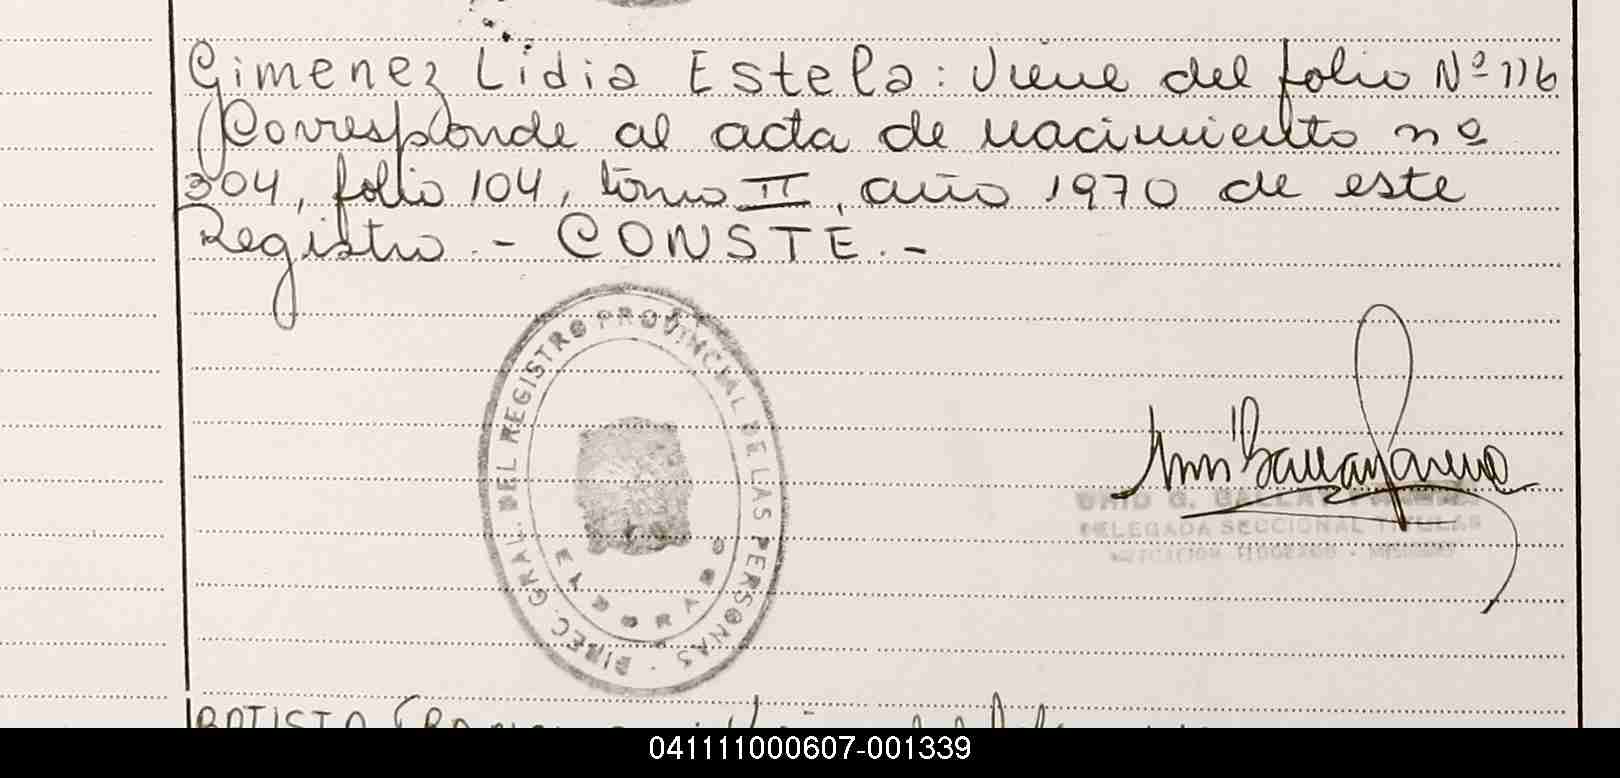 Gimenez Lidia Estela: Viene del folio Nº 116
(Corresponde al acta de nacimiento nº
304, folio 104, tomo II, año 1970 de este
Registro.- CONSTE.-
DIREC. GRAL. DEL REGISTRO PROVINCIAL DE LAS PERSONAS.
DELEGADA SECCIONAL TITULAR
041111000607-001339